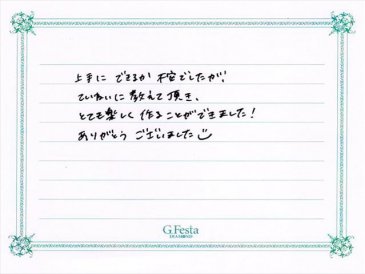 上手に できるか 不安でしたが、
ていねいに 教えて 頂き、
とても楽しく 作ることができました！
ありがとう ございました
G.Festa
DIAMOND